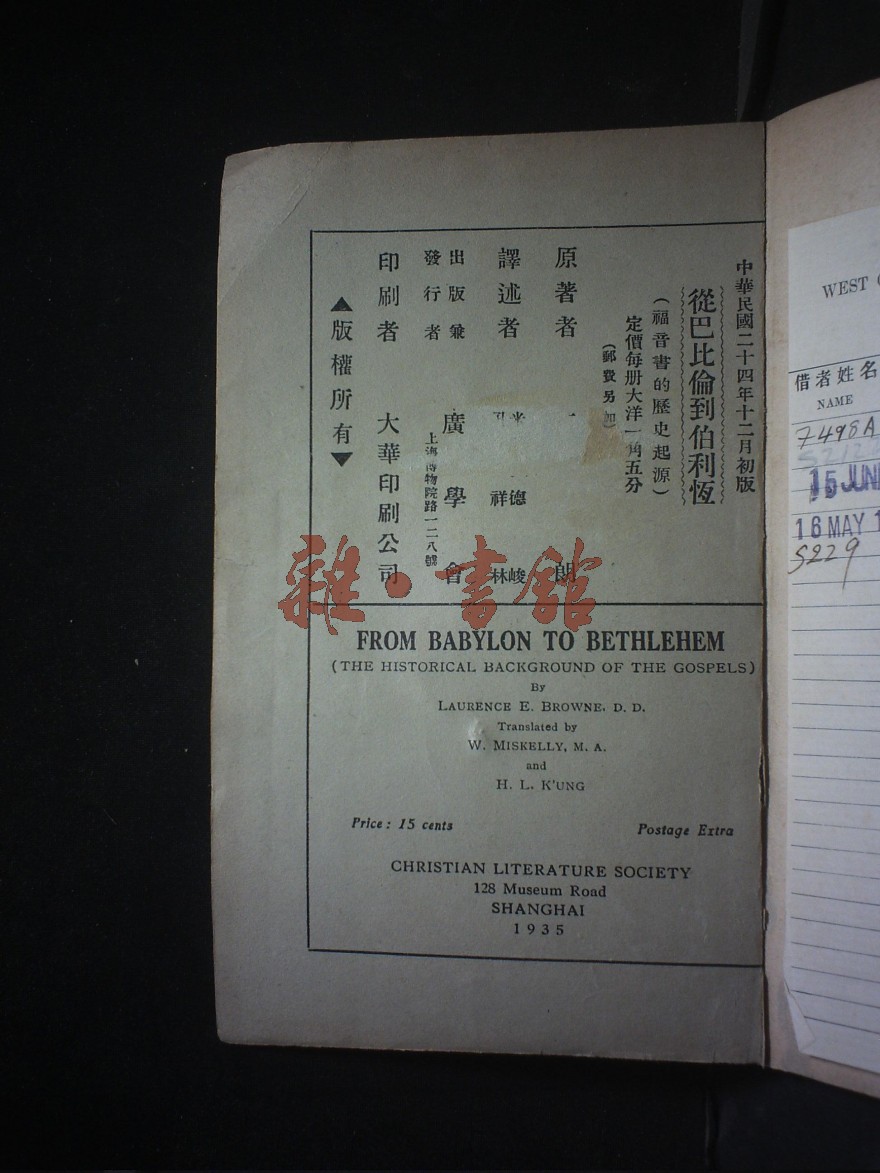 中華民國二十四年十二月初版
從巴比倫到伯利恆
（福音書的歷史起源）
定價每册大洋一角五分
（郵費另加）
原著者 朗
譯述者 米德峻
孔祥林
出版兼
發行者 廣學會
上海博物院路一二八號
印刷者 大華印刷公司
▲版權所有▼
雜·書館
FROM BABYLON TO BETHLEHEM
(THE HISTORICAL BACKGROUND OF THE GOSPELS)
By
LAURENCE E. BROWNE, D. D.
Translated by
W. MISKELLY, M. A.
and
H. L. K'UNG
Price: 15 cents Postage Extra
CHRISTIAN LITERATURE SOCIETY
128 Museum Road
SHANGHAI
1935
WEST
借者姓名
NAME
7498A
15 JUN
16 MAY 1
S229